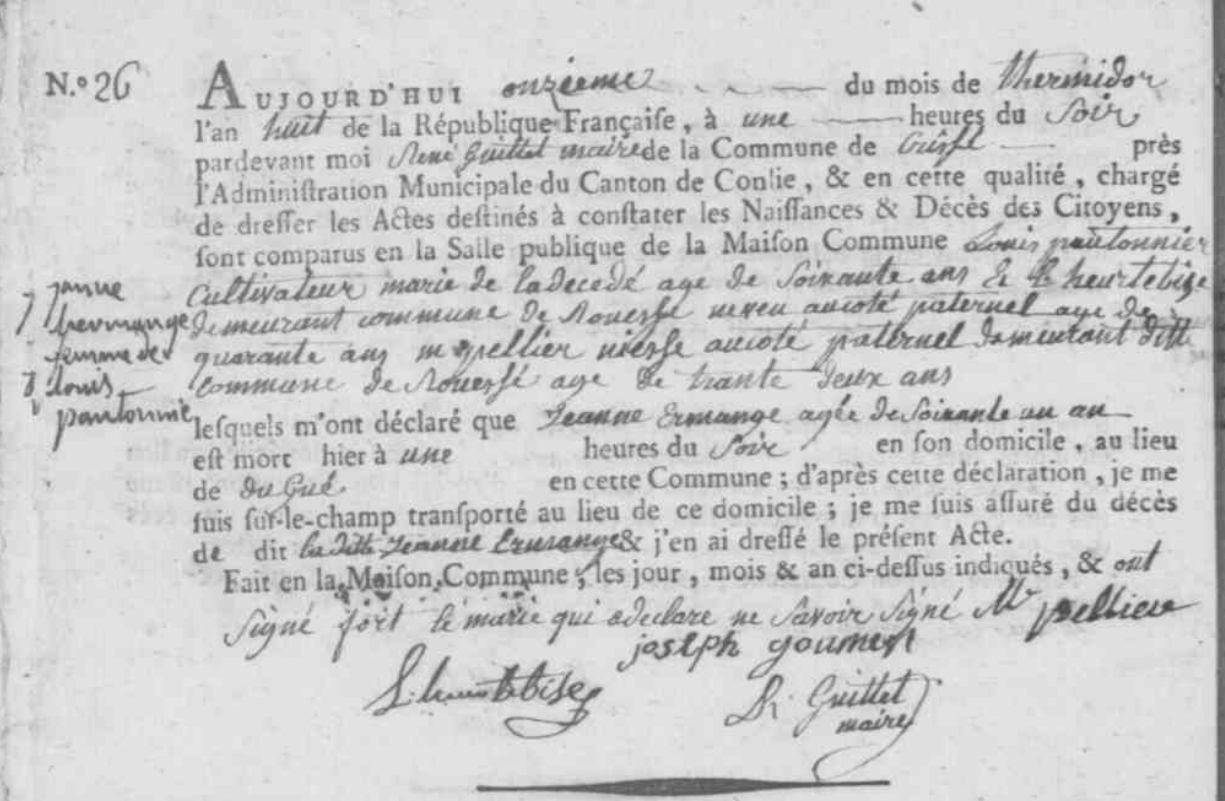 N.º 26
AUJOURD'HUI onzieme du mois de thermidor
l'an huit de la République Françaiſe, à une heures du Soir
pardevant moi René Guittet maire de la Commune de Crissé près
l'Adminiſtration Municipale du Canton de Conlie, & en cette qualité, chargé
de dreſſer les Actes deſtinés à conſtater les Naiſſances & Décès des Citoyens,
ſont comparus en la Salle publique de la Maiſon Commune Louis pautonnier
Cultivateur marie de ladecedé age de Soixante ans & L heurtebize
demeurant commune de Rouessé neveu aucoté paternel age de
quarante ans m pellier niesse aucoté paternel demeurant ditte
commune de Rouessé age de trante deux ans
janne
hermange
femme de
louis
pautonnié
leſquels m'ont déclaré que Jeanne Ermange agée de Soixante un an
eſt mort hier à une heures du Soir en ſon domicile, au lieu
de du Gué en cette Commune; d'après cette déclaration, je me
ſuis ſur-le-champ tranſporté au lieu de ce domicile; je me ſuis aſſuré du décès
de dit la ditte Jeanne Ermange & j'en ai dreſſé le préſent Acte.
Fait en la Maiſon Commune, les jour, mois & an ci-deſſus indiqués, & ont
Signé fort le marie qui a declare ne Savoir Signé M pelliere
joseph
L. heurtebise
R Guittet
maire